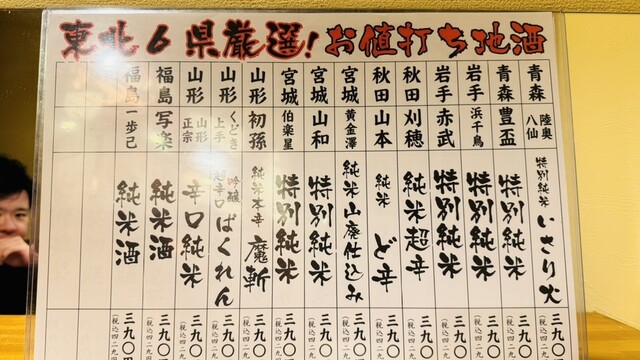 東北6県厳選!お値打ち地酒
青森 陸奥八仙 特別純米 いさり火 三九〇 (税込四二九
青森 豊盃 特別純米 三九〇 (税込四二九
岩手 浜千鳥 特別純米 三九〇 (税込四二九
岩手 赤武 特別純米 三九〇 (税込四二九
秋田 刈穂 純米超辛 三九〇 (税込四二九
秋田 山本 純米 ど辛 三九〇 (税込四二九
宮城 黄金澤 純米山廃仕込み 三九〇 (税込四二九
宮城 山和 特別純米 三九〇 (税込四二九
宮城 伯楽星 特別純米 三九〇 (税込四二九
山形 初孫 純米本辛 魔斬 三九〇 (税込四二九
山形 くどき上手 吟醸 辛口 ばくれん 三九〇 (税込四二九
山形 山形正宗 辛口純米 三九〇 (税込四二九
福島 写楽 純米酒 三九〇 (税込四二九
福島 一歩己 純米酒 三九〇円 (税込四二九円